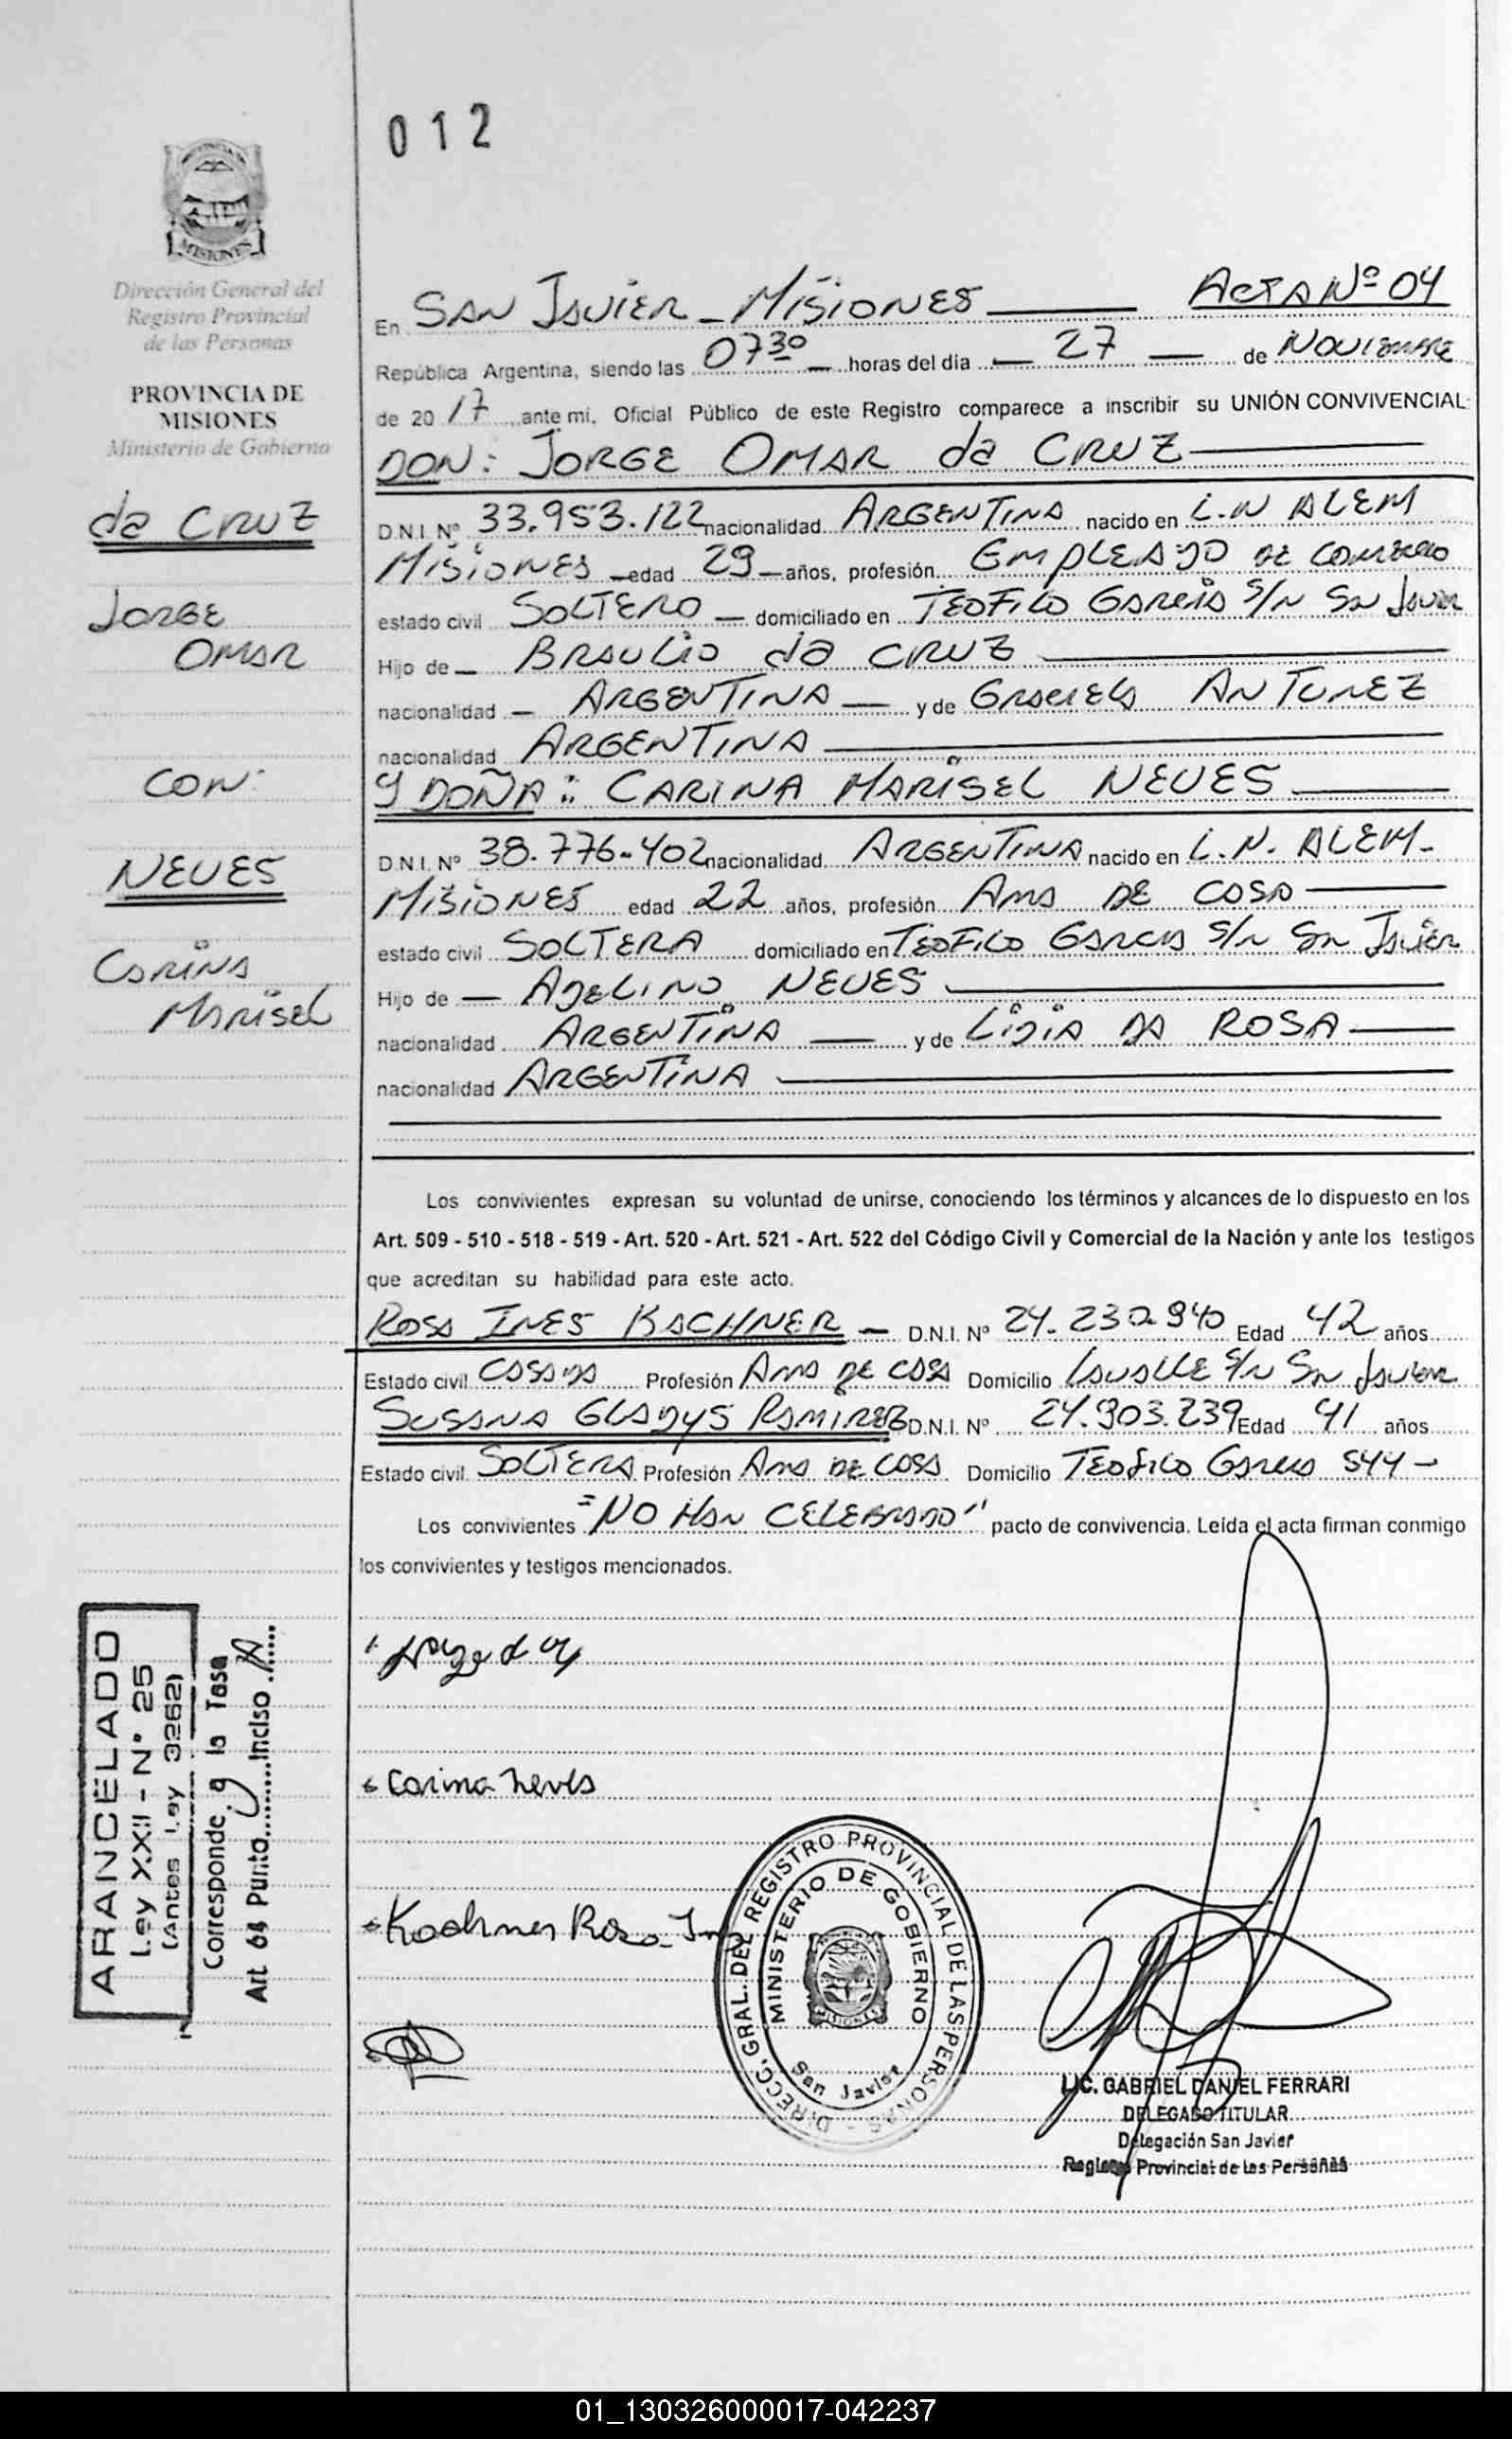 012
PROVINCIA DE
MISIONES
Dirección General del
Registro Provincial
de las Personas
PROVINCIA DE
MISIONES
Ministerio de Gobierno
da CRUZ
JORGE
OMAR
CON:
NEVES
CARINA
MARISEL
ARANCELADO
Ley XXII - N° 25
(Antes Ley 3262)
Corresponde a la Tasa
Art 64 Punto Inciso
ACTA Nº 04
En SAN JAVIER - MISIONES
República Argentina, siendo las 07 30 horas del día 27 de NOVIEMBRE
de 2017 ante mi, Oficial Público de este Registro comparece a inscribir su UNIÓN CONVIVENCIAL:
DON: JORGE OMAR da CRUZ
D.N.I. Nº 33.953.122 nacionalidad ARGENTINA nacido en L.N ALEM
MISIONES edad 29 años, profesión EMPLEADO DE COMERCIO
estado civil SOLTERO domiciliado en TEOFILO GARCIA S/N SAN JAVIER
Hijo de BRAULIO da CRUZ
nacionalidad ARGENTINA y de GRACIELA ANTUNEZ
nacionalidad ARGENTINA
Y DOÑA: CARINA MARISEL NEVES
D.N.I. Nº 38.776.402 nacionalidad ARGENTINA nacido en L.N. ALEM-
MISIONES edad 22 años, profesión AMA DE CASA
estado civil SOLTERA domiciliado en TEOFILO GARCIA S/N SAN JAVIER
Hijo de NEVES
nacionalidad ARGENTINA y de LIDIA DA ROSA
nacionalidad ARGENTINA
Los convivientes expresan su voluntad de unirse, conociendo los términos y alcances de lo dispuesto en los
Art. 509 - 510 - 518 - 519 - Art. 520 - Art. 521 - Art. 522 del Código Civil y Comercial de la Nación y ante los testigos
que acreditan su habilidad para este acto.
ROSA INES KACHNER - D.N.I. Nº 24.230.940 Edad 42 años
Estado civil CASADA Profesión AMA DE CASA Domicilio LAVALLE S/N SAN JAVIER
SUSANA GLADYS RAMIREZ D.N.I. Nº 24.903.239 Edad 41 años
Estado civil SOLTERA Profesión AMA DE CASA Domicilio TEOFILO GARCIA 544 -
Los convivientes "NO HAN CELEBRADO" pacto de convivencia. Leída el acta firman conmigo
los convivientes y testigos mencionados.
Carina Neves
Kachner Rosa
DIRECC. GRAL. DEL REGISTRO PROVINCIAL DE LAS PERSONAS -
MINISTERIO DE GOBIERNO
MISIONES
San Javier
LIC. GABRIEL DANIEL FERRARI
DELEGADO TITULAR
Delegación San Javier
Registro Provincial de las Personas
01_130326000017-042237